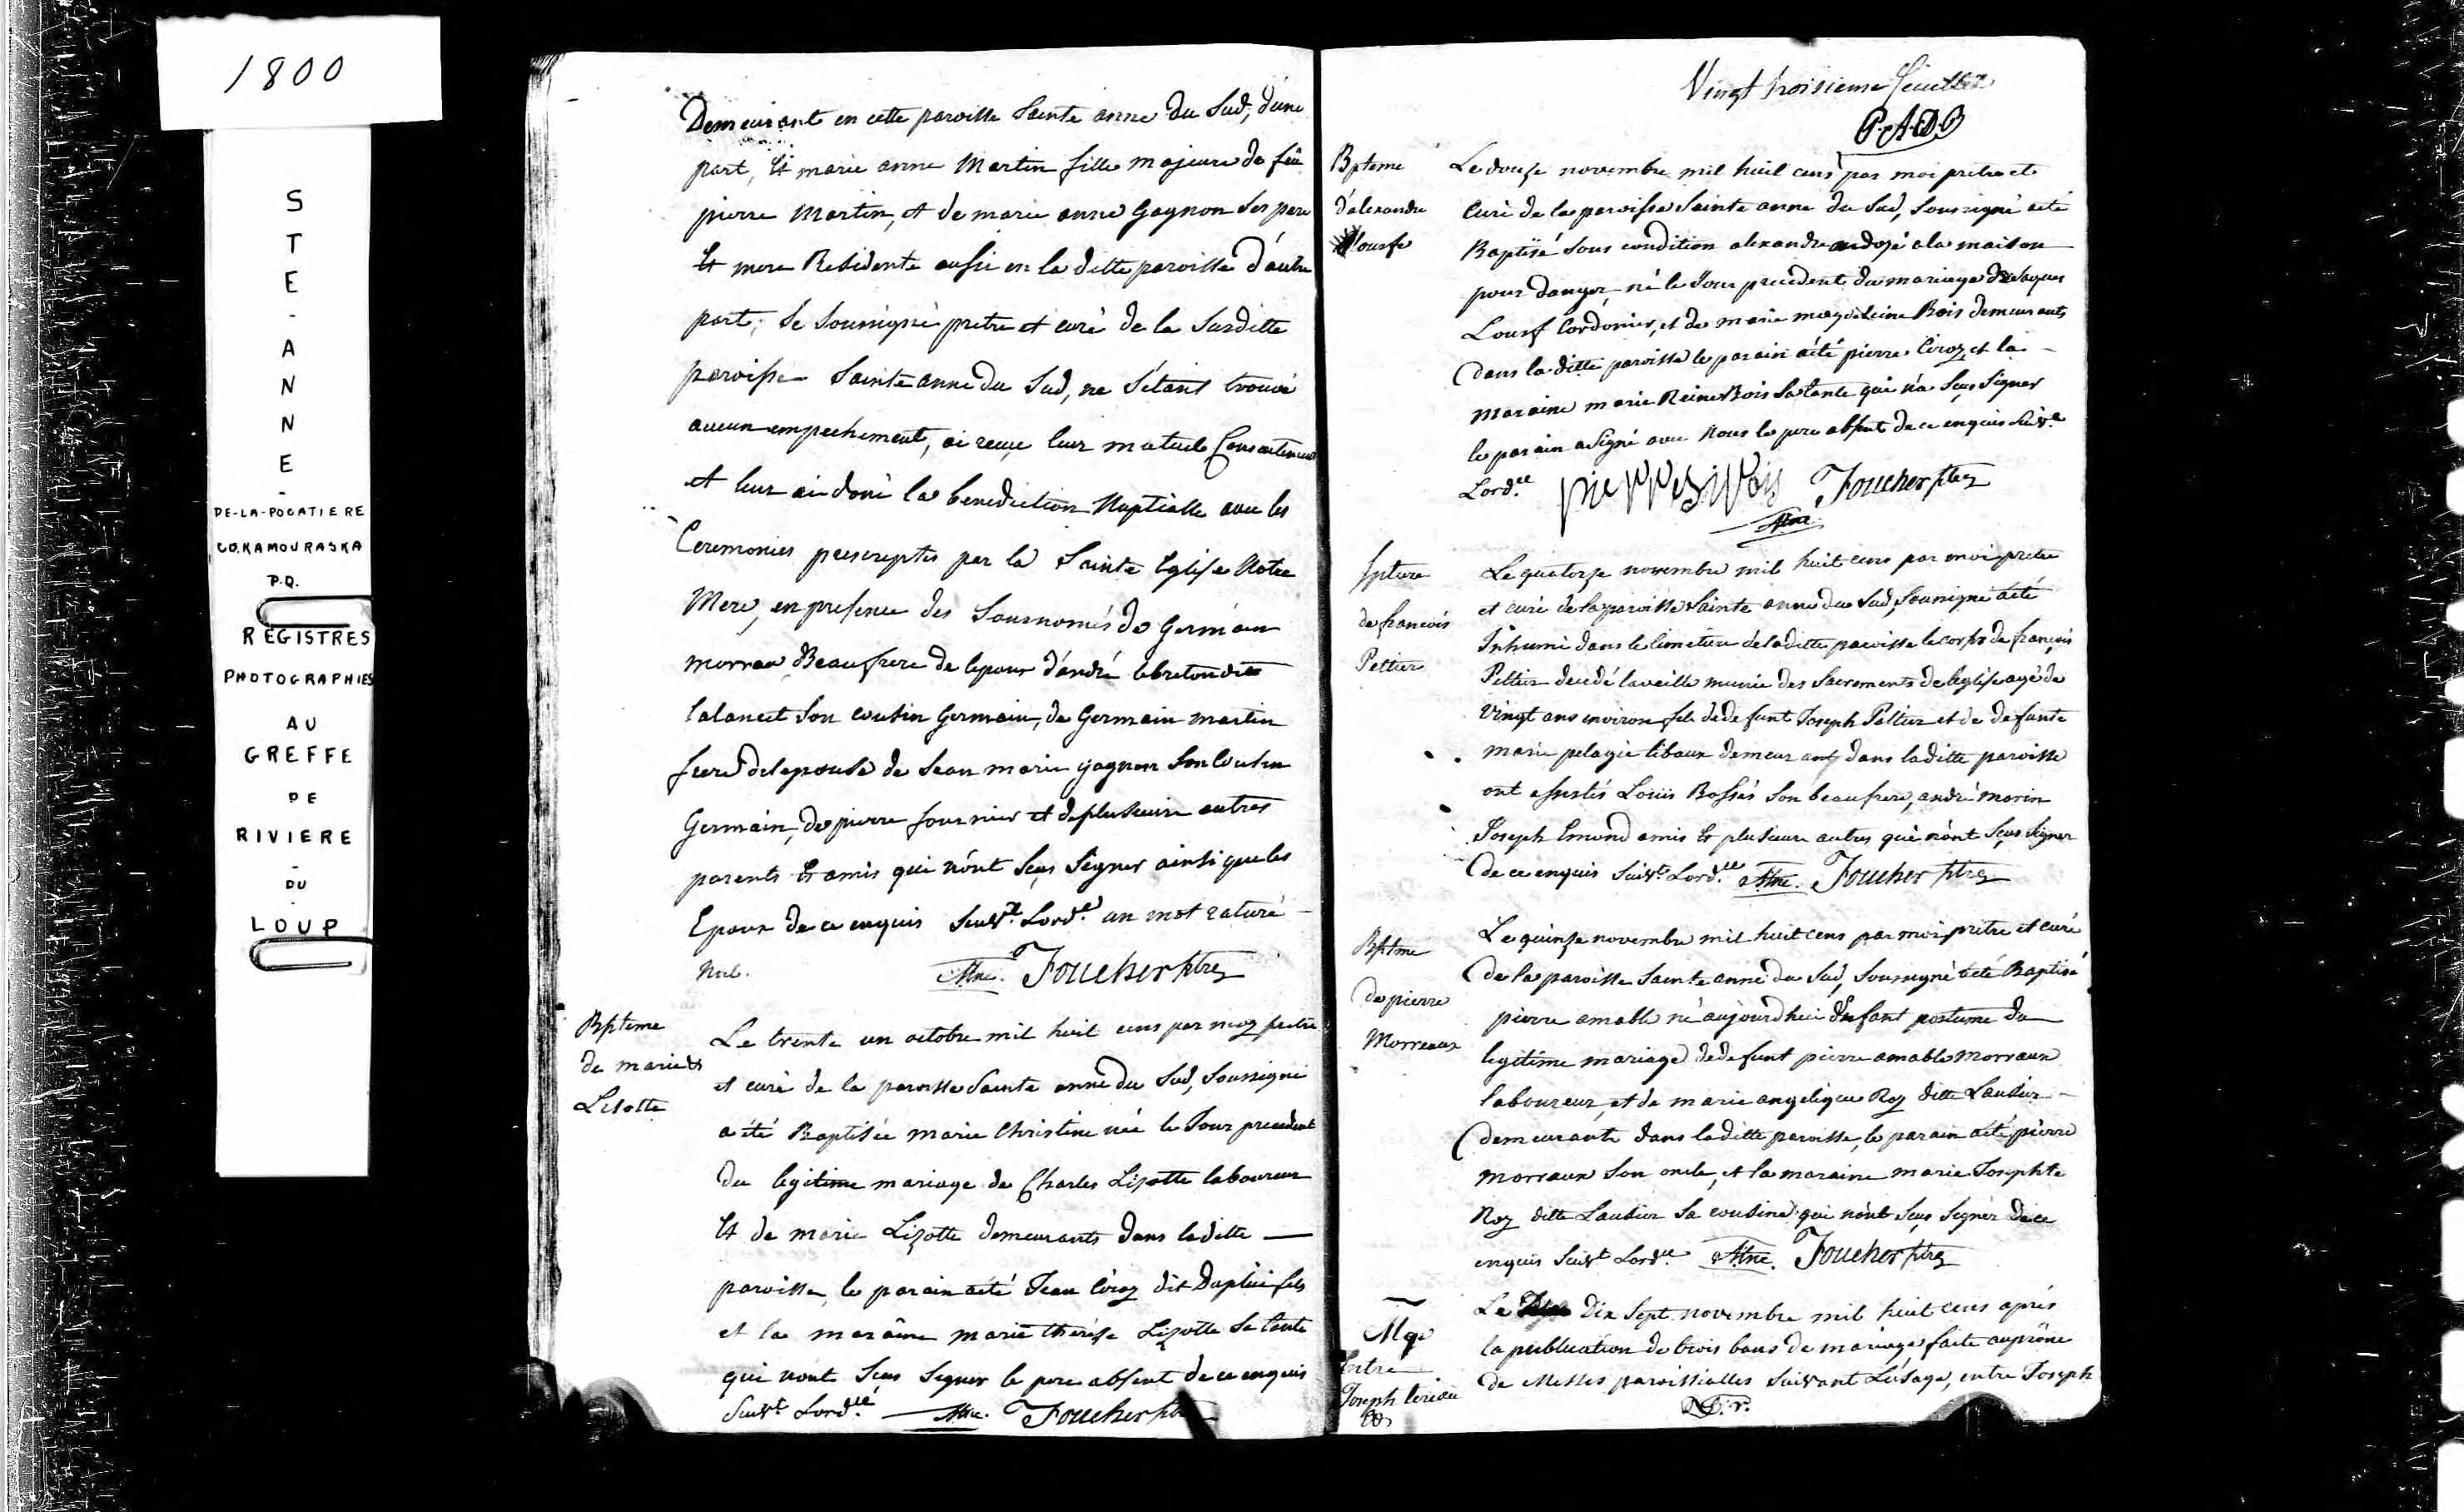 1800
S
T
E
-
A
N
N
E
-
DE-LA-POCATIERE
CO.KAMOURASKA
P.Q.
REGISTRES
PHOTOGRAPHIES
AU
GREFFE
DE
RIVIERE
-
DU
-
LOUP
Demeurant en cette paroisse Sainte anne du Sud, d'une
part, Et marie anne Martin fille majeure de feu
pierre Martin, et de marie anne Gagnon ses pere
Et mere Residente aussi en la ditte paroisse d'autre
part, Je Soussigné pretre et curé de la Susditte
paroisse Sainte anne du Sud, ne s'étant trouvé
aucun empechement, ai reçue leur mutuele Consentement
et leur ai doné la benediction Nuptialle avec les
Ceremonies prescriptes par la Sainte Eglise Notre
Mere, en presence des Sousnomés de Germain
morreau Beaufrere de lepoux d'andré lebreton dit
lalancet son cousin Germain, de Germain martin
frere delepouse de Jean marie gagnon son Cousin
Germain, de pierre fournier et deplusieurs autres
parents Et amis qui n'ont Sçus Signer ainsi que les
Epoux de ce enquis Suivt. Lord.e un mot raturé
Nul. Foucher ptre
Bpteme
de marie
Lisotte
Le trente un octobre mil huit cens par moy pretre
et curé de la paroisse Sainte anne du Sud, Soussigné
a été Baptisée marie Christine née le Jour precedent
du legitime mariage de Charles Lizotte laboureur
Et de marie Lizotte demeurants dans laditte
paroisse, le parain aété Jean Ciroy dit Duplici fils
et la maraine marie therese Lizotte Sa tante
qui nont Sçus Signer le pere absent de ce enquis
Suivt Lord.ce Foucher ptre
Vingt troisieme feuillet
P.A.D.B
Bpteme
d'alexandre
Lousf
Le douze novembre mil huit cens par moi pretre et
Curé de la paroisse Sainte anne du Sud, Soussigné aété
Baptisé Sous condition alexandre ondoyé ala maison
pour danger né le Jour precedent du mariage de Jaques
Lousf Cordonier, et de marie magdeleine Bois demeurants
Dans la ditte paroisse le parain aété pierre Ciroy et la
maraine marie Reine Bois Sa tante qui n'a Sçus Signer
le parain a signé avec Nous le pere absent de ce enquis Suivt
Lord.ce Foucher ptre
Spture
de francois
Peltier
Le quatorze novembre mil huit cens par moi pretre
et curé de la paroisse Sainte anne du Sud, Soussigné aété
Inhumé dans le Cimetiere de laditte paroisse le corps de françois
Peltier decedé laveille munie des Sacrements de leglise agé de
Vingt ans environ fils dedefunt Joseph Peltier et de defunte
marie pelagie tibaux demeurant dans laditte paroisse
ont assistés Louïs Bossés Son beaufrere, andré morin
Joseph Emond amis Et plusieurs autres qui n'ont Sçus Signer
de ce enquis Suivt. Lord.ce Foucher ptre
Bptme
de pierre
Morreaux
Le quinze novembre mil huit cens par moi prêtre et curé
de la paroisse Sainte anne du Sud, Soussigné aété Baptisé
pierre amable né aujourdhui Enfant postume du
legitime mariage dedefunt pierre amable Morraux
laboureur, et de marie angelique Roy ditte Lausier
demeurante dans laditte paroisse, le parain aété pierre
morraux Son oncle, et la maraine marie Josephte
Roy ditte Lausier Sa cousine qui n'ont Sçus Signer de ce
enquis Suivt Lord.ce Foucher ptre
Mge
Entre
Joseph
Le Dix Sept novembre mil huit cens aprés
la publication de trois bans de mariage faite auprône
de Messes paroissialles Suivant Lusage, entre Joseph